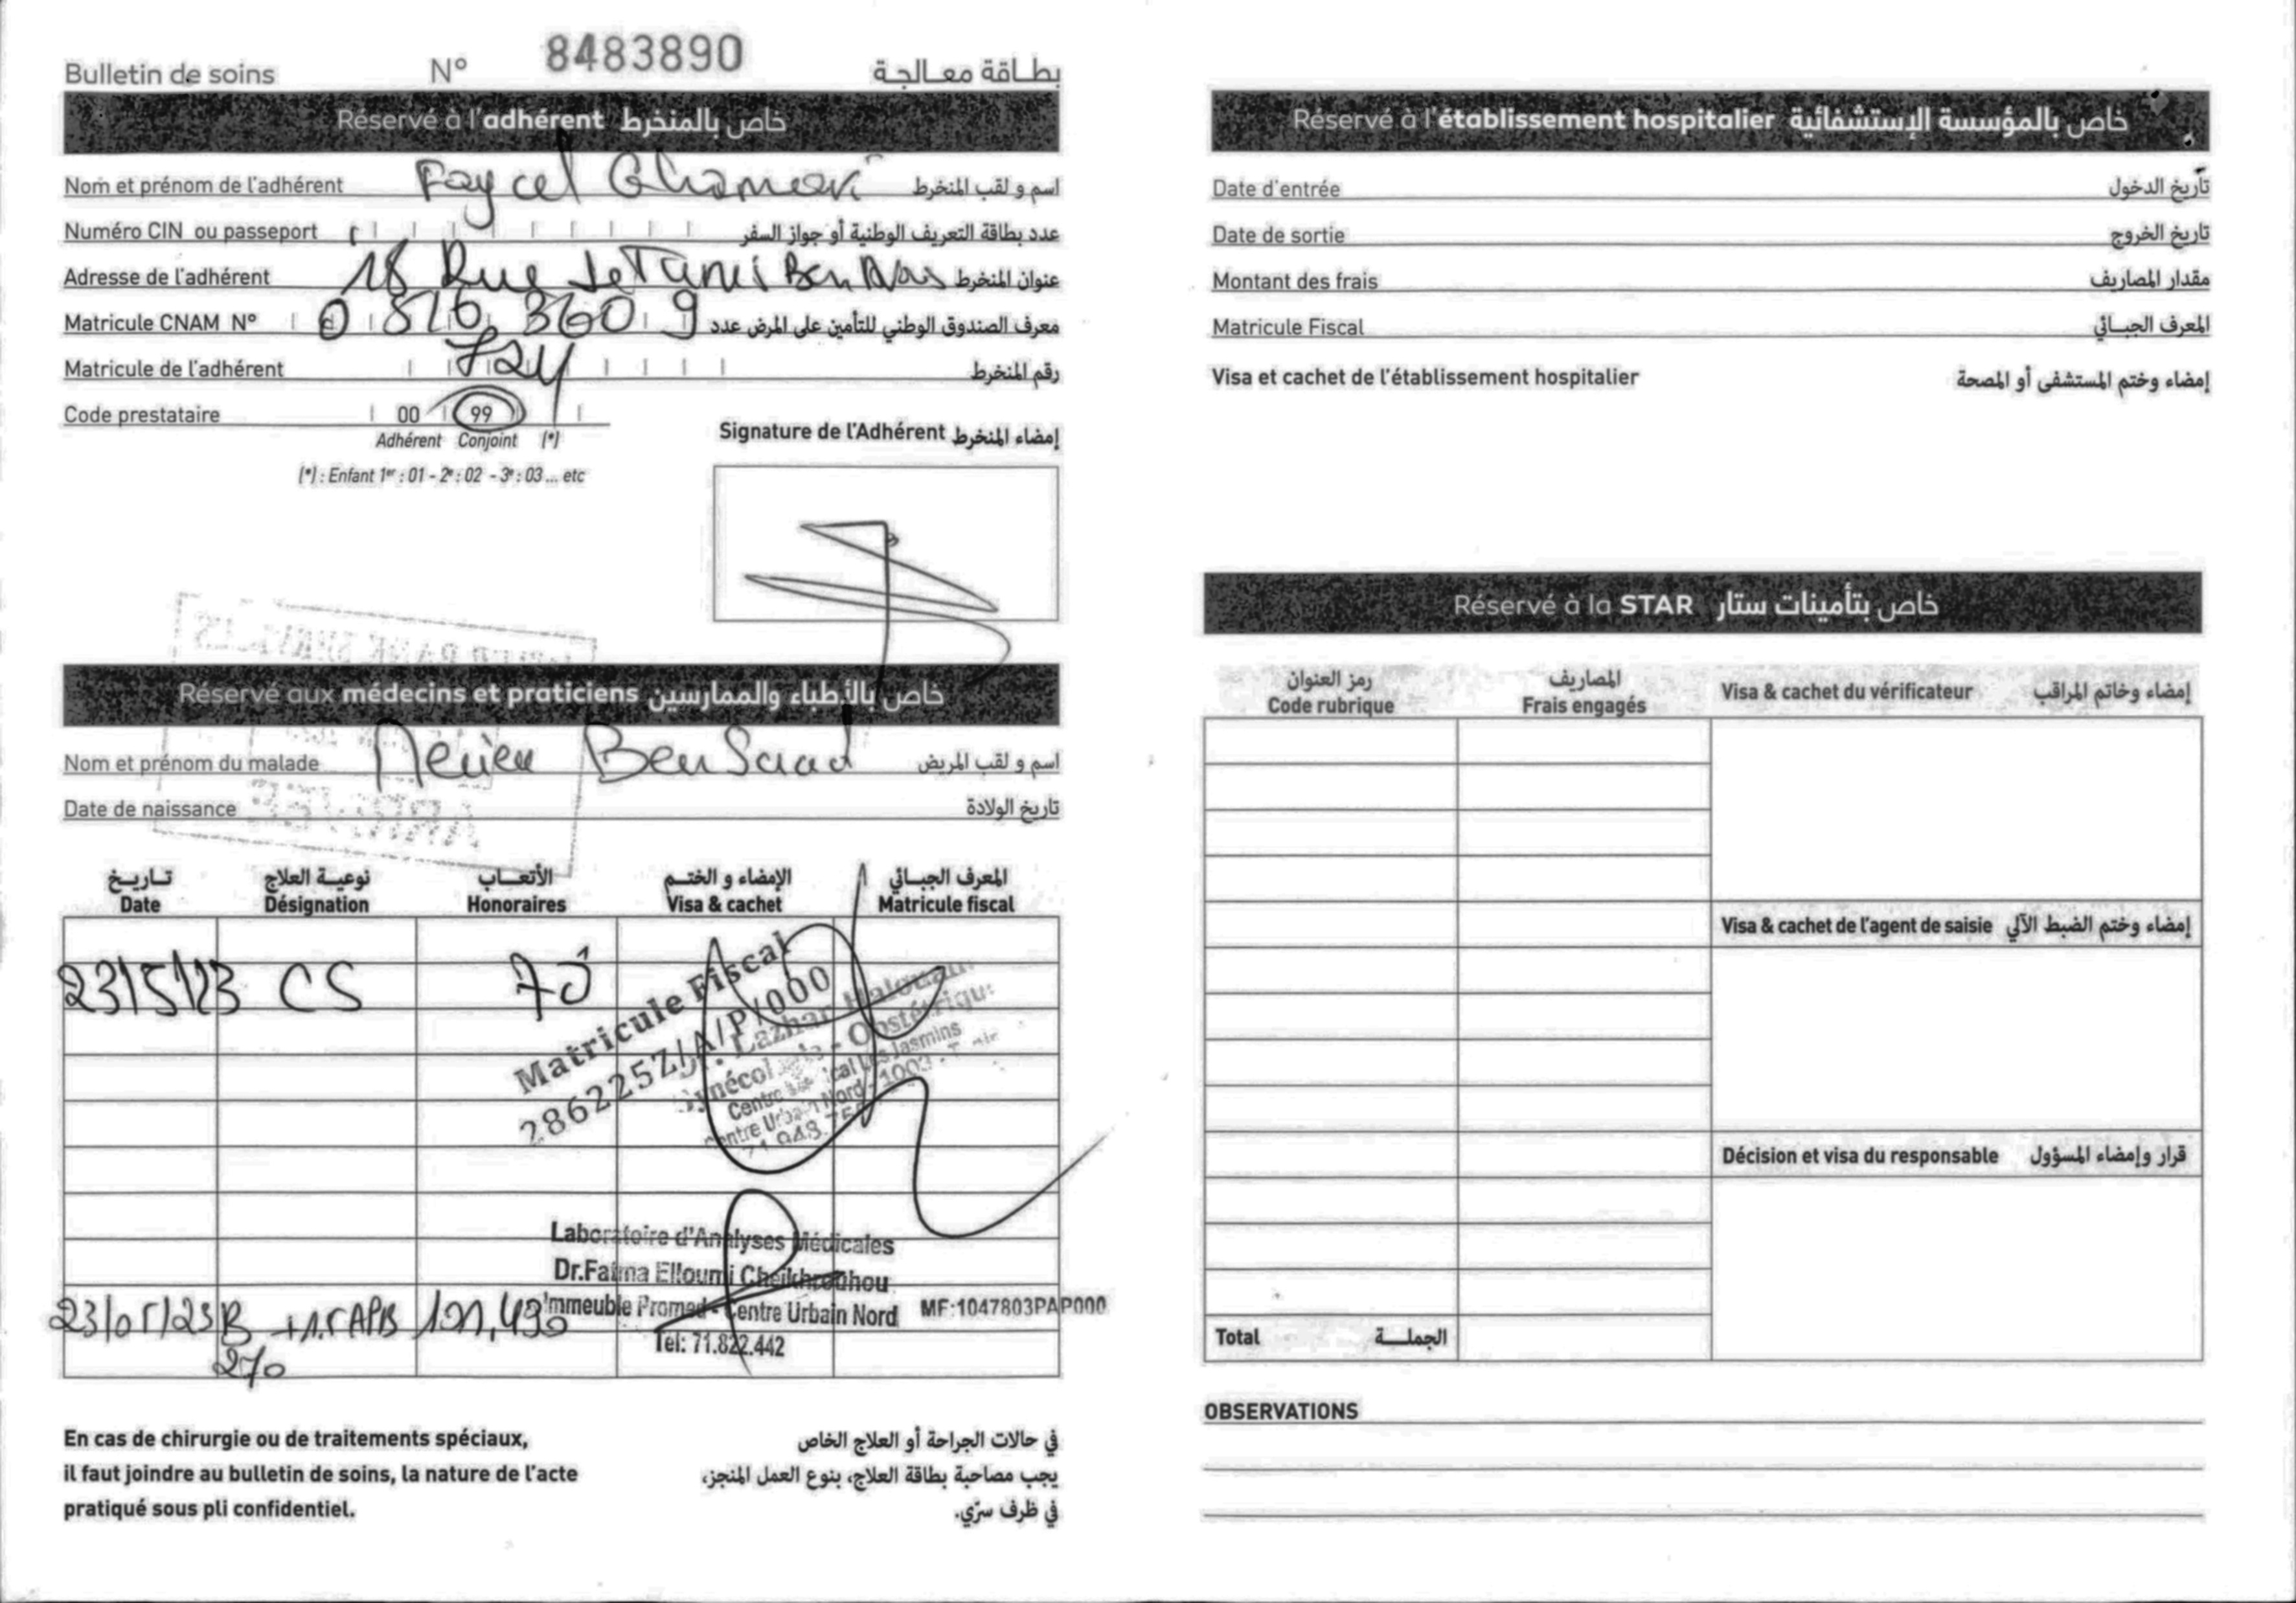 Bulletin de soins N° 8483890 بطاقة معالجة
Réservé à l'adhérent خاص بالمنخرط
Nom et prénom de l'adhérent Faycel Ghameri اسم و لقب المنخرط
Numéro CIN ou passeport عدد بطاقة التعريف الوطنية أو جواز السفر
Adresse de l'adhérent 18 Rue عنوان المنخرط
Matricule CNAM N° 0 826 360 9 معرف الصندوق الوطني للتأمين على المرض عدد
Matricule de l'adhérent 724 رقم المنخرط
Code prestataire 00 99
Adhérent Conjoint (*)
(*) : Enfant 1er : 01 - 2e : 02 - 3e : 03 ... etc
Signature de l'Adhérent إمضاء المنخرط
Réservé aux médecins et praticiens خاص بالأطباء والممارسين
Nom et prénom du malade Ben Saad اسم و لقب المريض
Date de naissance تاريخ الولادة
تاريخ نوعية العلاج الأتعاب الإمضاء و الختم المعرف الجبائي
Date Désignation Honoraires Visa & cachet Matricule fiscal
23/5/23 CS 70
Matricule Fiscal
286225Z/A/P/000
Dr. Lazhar
Gynécologie - Obstétrique
Centre Médical Les Jasmins
Centre Urbain Nord - 1003 -
71 948
Laboratoire d'Analyses Médicales
Dr.Fatma Elloumi Cheikhrouhou
Immeuble Promed - Centre Urbain Nord MF:1047803PAP000
Tel: 71.822.442
23/05/23 B +1.5 APB 121,490
270
En cas de chirurgie ou de traitements spéciaux,
il faut joindre au bulletin de soins, la nature de l'acte
pratiqué sous pli confidentiel.
في حالات الجراحة أو العلاج الخاص
يجب مصاحبة بطاقة العلاج، بنوع العمل المنجز،
في ظرف سرّي.
Réservé à l'établissement hospitalier خاص بالمؤسسة الإستشفائية
Date d'entrée تاريخ الدخول
Date de sortie تاريخ الخروج
Montant des frais مقدار المصاريف
Matricule Fiscal المعرف الجبائي
Visa et cachet de l'établissement hospitalier إمضاء وختم المستشفى أو المصحة
Réservé à la STAR خاص بتأمينات ستار
رمز العنوان المصاريف
Code rubrique Frais engagés
Visa & cachet du vérificateur إمضاء وخاتم المراقب
Visa & cachet de l'agent de saisie إمضاء وختم الضبط الآلي
Décision et visa du responsable قرار وإمضاء المسؤول
Total الجملة
OBSERVATIONS